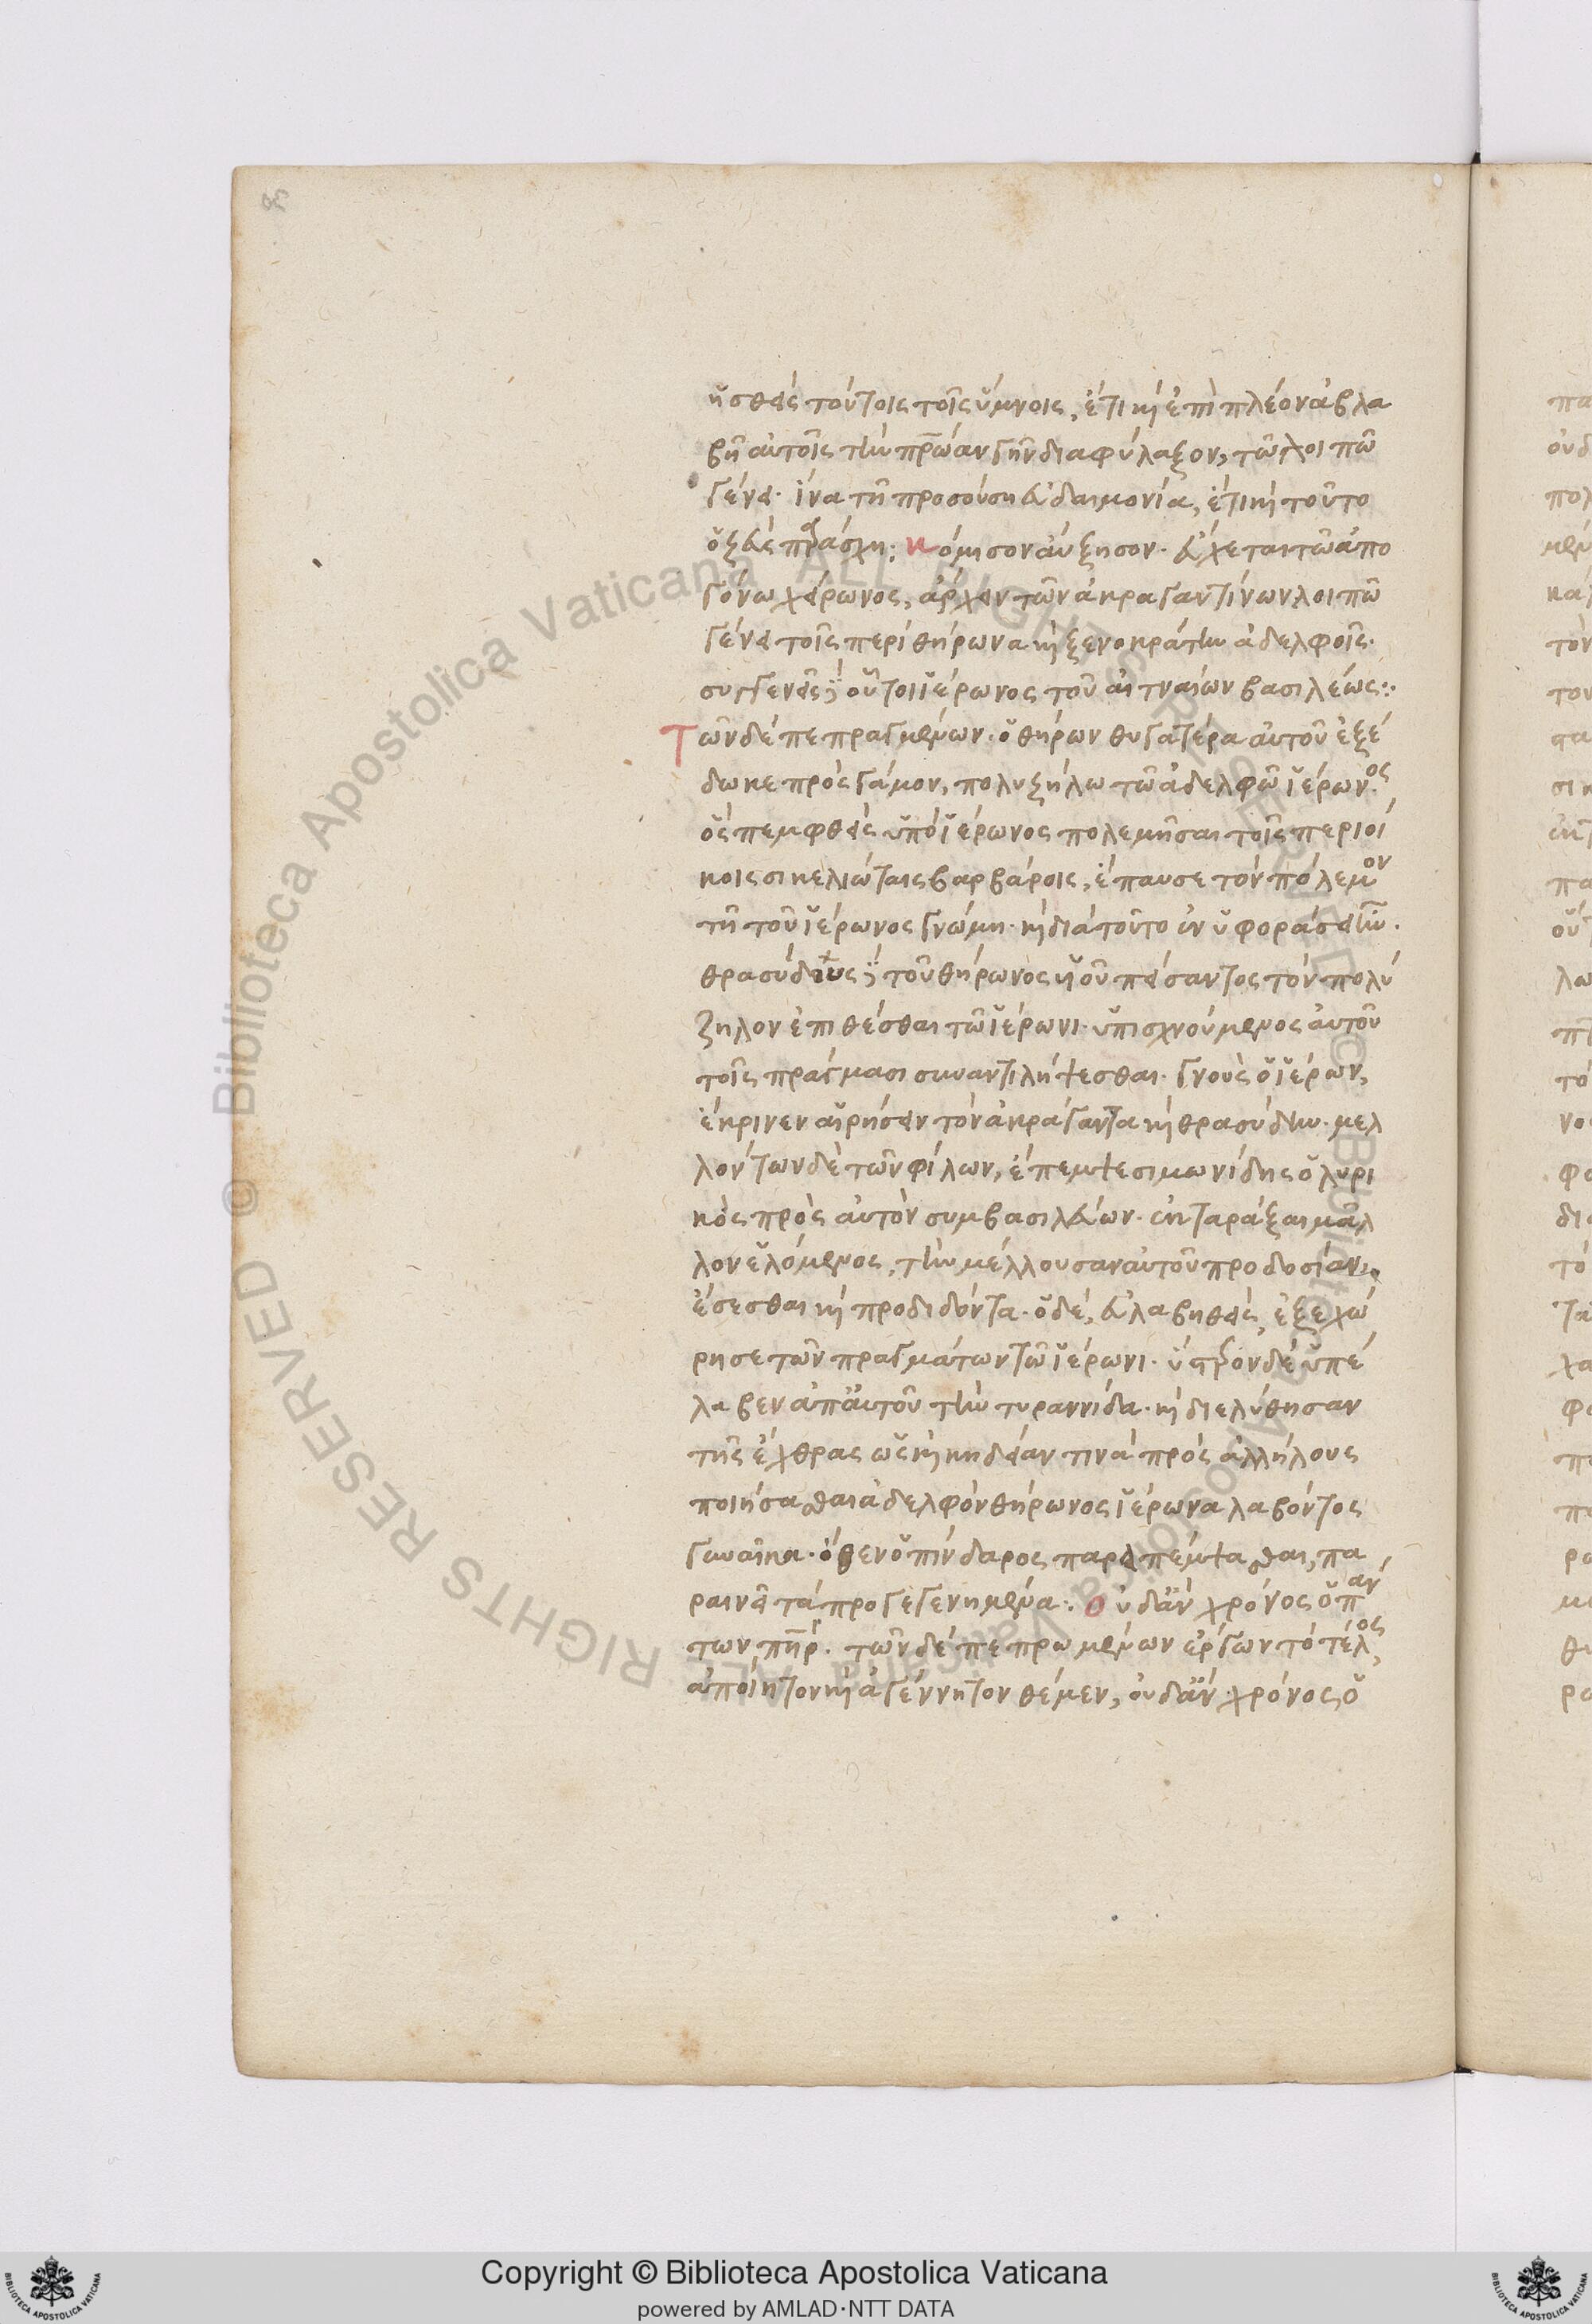 ἡσθεὶς τούτοις τοῖς ὕμνοις, ἔτι κὴ ἐπὶ πλέον ἀβλα
βῆ αὐτοῖς τὴν πρώαν γῆν διαφύλαξον, τῶ λοιπῶ
γένει· ἵνα τῆ προσούση εὐδαιμονία, ἔτι κὴ τοῦτο
ὁ ζεὺς παράσχη: κόμισον αὔξησον· εὔχεται τῶ ἀπο
γόνω χέρωνος, ἄρχειν τῶν ἀκραγαντίνων λοιπῶ
γένει τοῖς περὶ θήρωνα κὴ ξενοκράτην ἀδελφοῖς·
συγγενεῖς οὗτοι ἱέρωνος τοῦ αἰτναίων βασιλέως:·
Τῶν δὲ πεπραγμένων· ὁ θήρων θυγατέρα αὐτοῦ ἐξέ
δωκε πρὸς γάμον, πολυζήλω τῶ ἀδελφῶ ἱέρωνος
ὃς πεμφθεὶς ὑπὸ ἱέρωνος πολεμῆσαι τοῖς περιοί
κοις σικελιώταις βαρβάροις, ἔπαυσε τὸν πόλεμον
τῆ τοῦ ἱέρωνος γνώμη· κὴ διὰ τοῦτο ἐν ὑφοράσει ἦν·
θρασύδιος τοῦ θήρωνος υἱοῦ πείσαντος τὸν πολύ
ζηλον ἐπιθέσθαι τῶ ἱέρωνι· ὑπισχνούμενος αὐτοῦ
τοῖς πράγμασι συναντιλήψεσθαι· γνοὺς ὁ ἱέρων,
ἔκρινεν αἱρήσειν τὸν ἀκράγαντα κὴ θρασύδην· μελ
λόντων δὲ τῶν φίλων, ἔπεμψε σιμωνίδης ὁ λυρι
κὸς πρὸς αὐτὸν συμβασιλεύων· ἐκταράξαι μᾶλ
λον ἑλόμενος, τὴν μέλλουσαν αὐτοῦ προδοσίαν
ἔσεσθαι κὴ προδιδόντα· ὁ δὲ, εὐλαβηθεὶς, ἐξεχώ
ρησε τῶν πραγμάτων τῶ ἱέρωνι· ὕστερον δὲ ὑπέ
λαβεν ἀπ' αὐτοῦ τὴν τυραννίδα· κὴ διελύθησαν
τῆς ἔχθρας ὡς κὴ κηδείαν τινὰ πρὸς ἀλλήλους
ποιήσασθαι ἀδελφὸν θήρωνος ἱέρωνα λαβόντος
γυναῖκα· ὅθεν ὁ πίνδαρος παραπέμψασθαι, πα
ραινεῖ τὰ προγεγενημένα:· οὐδ' ἂν χρόνος ὁ πάν
των πατήρ· τῶν δὲ πεπραμένων ἔργων τὸ τέλος,
ἀποίητον κὴ ἀγέννητον θέμεν, οὐδ' ἂν χρόνος ὁ